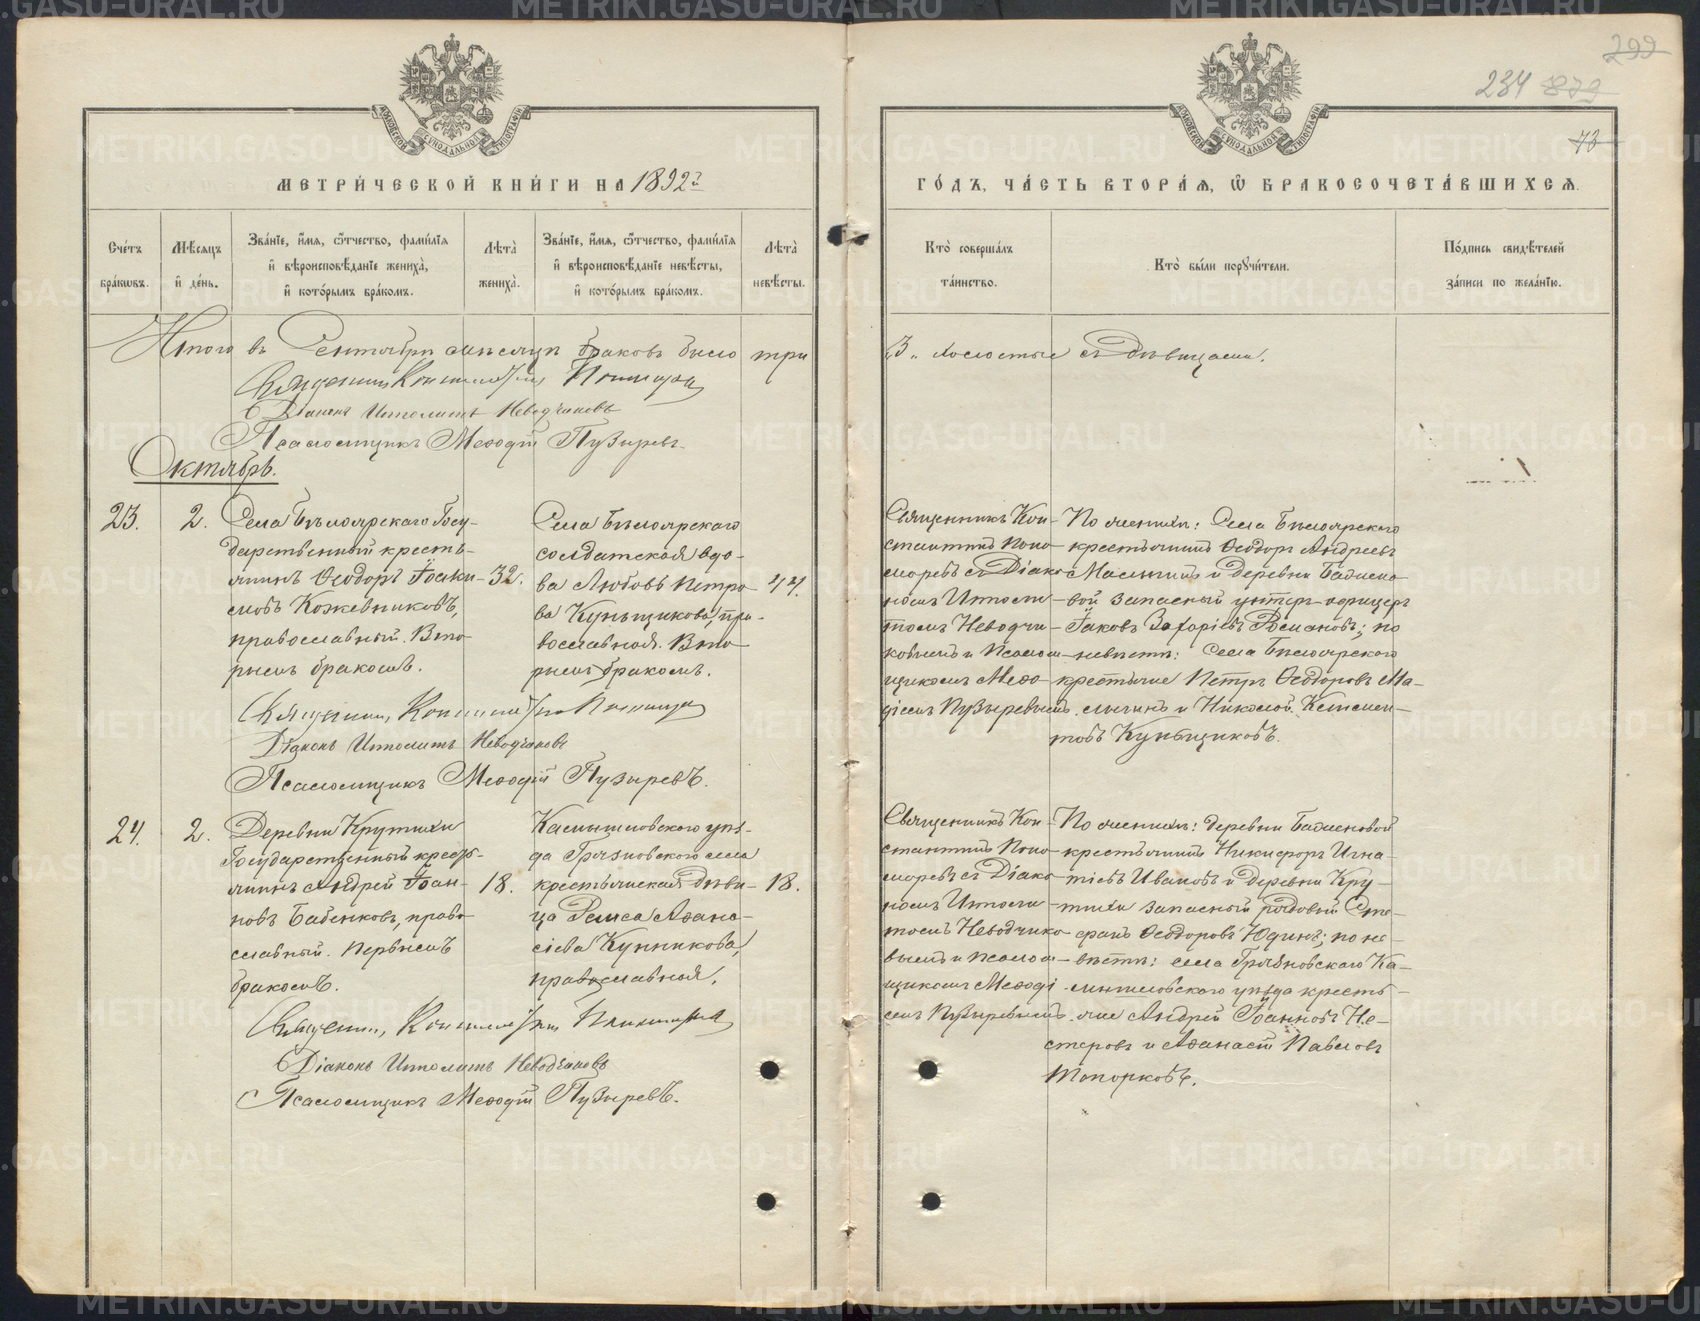 299
234 879
73
МЕТРИ́ЧЕСКОЙ КНИ́ГИ НА 1892й
ГО́ДЪ, ЧА́СТЬ ВТОРА́Я, Ѡ҆ БРАКОСОЧЕТА́ВШИХСЯ.
Сче́тъ бра́кѡвъ.
Мѣ́сяцъ и҆ де́нь.
Зва́нїе, и҆́мя, ѻ҆́тчество, фами́лїя
и҆ вѣроисповѣ́данїе жениха̀,
и҆ кото́рымъ бра́комъ.
Лѣта̀ жениха̀.
Зва́нїе, и҆́мя, ѻ҆́тчество, фами́лїя
и҆ вѣроисповѣ́данїе невѣ́сты,
и҆ кото́рымъ бра́комъ.
Лѣта̀ невѣ́сты.
Кто̀ соверша́лъ
та́инство.
Кто̀ бы́ли порꙋчи́тели.
По́дпись свидѣ́телей
за́писи по жела́нїю.
Итого въ Сентябрѣ мѣсяцѣ браковъ было три
3. холостые съ дѣвицами.
Священникъ Константинъ
Діаконъ Ипполитъ Неводчиковъ
Псаломщикъ Меѳодій Пузыревъ.
Октябрь.
23.
2.
Села Бѣлоярскаго Госу-
дарственный кресть-
янинъ Ѳеодоръ Іоаки-
мовъ Кожевниковъ,
православный. Вто-
рымъ бракомъ.
32.
Села Бѣлоярскаго
солдатская вдо-
ва Любовь Петро-
ва Кунгщикова, пра-
вославная. Вто-
рымъ бракомъ.
44.
Священникъ Кон-
стантинъ Попо-
моревъ съ Діако-
номъ Ипполи-
томъ Неводчи-
ковымъ и Псалом-
щикомъ Меѳо-
діемъ Пузыревымъ.
По женихѣ: Села Бѣлоярскаго
крестьянинъ Ѳеодоръ Андреевъ
и деревни Баженo-
вой запасный унтеръ-офицеръ
Іаковъ Захаріевъ Романовъ; по
невѣстѣ: Села Бѣлоярскаго
крестьяне Петръ Ѳеодоровъ Ма-
и Николай Клемен-
товъ Кунгщиковъ.
Священникъ Константинъ
Діаконъ Ипполитъ Неводчиковъ
Псаломщикъ Меѳодій Пузыревъ.
24.
2.
Деревни Крутихи
Государственный кресть-
янинъ Андрей Іоан-
новъ Бабенковъ, право-
славный. Первымъ
бракомъ.
18.
Камышловскаго уѣз-
да Грязновскаго села
крестьянская дѣви-
ца Аѳана-
сіева Купникова,
православная.
18.
Священникъ Кон-
стантинъ Попо-
моревъ съ Діако-
номъ Ипполи-
томъ Неводчико-
вымъ и Псалом-
щикомъ Меѳоді-
емъ Пузыревымъ.
По женихѣ: деревни Баженовой
крестьянинъ Никифоръ Игна-
тіевъ Ивановъ и деревни Кру-
тихи запасный рядовой Сте-
фанъ Ѳеодоровъ Юдинъ; по не-
вѣстѣ: села Грязновскаго Ка-
мышловскаго уѣзда кресть-
яне Андрей Іоанновъ Не-
стеровъ и Аѳанасій Павловъ
Топорковъ.
Священникъ Константинъ
Діаконъ Ипполитъ Неводчиковъ
Псаломщикъ Меѳодій Пузыревъ.